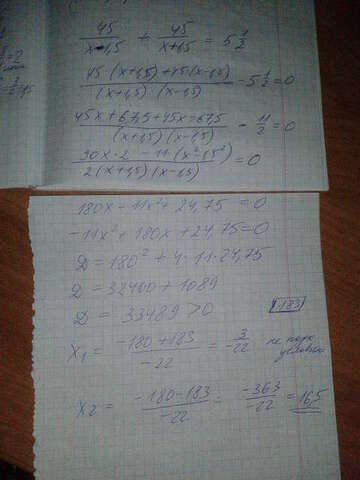 45/(x-1,5) + 45/(x+1,5) = 5 1/2
(45·(x+1,5)+45(x-1,5))/((x+1,5)·(x-1,5)) - 5 1/2 = 0
(45x+67,5+45x-67,5)/((x+1,5)(x-1,5)) - 11/2 = 0
(90x·2 - 11(x²-1,5²))/(2(x+1,5)(x-1,5)) = 0
180x-11x²+24,75 = 0
-11x²+180x+24,75=0
D=180²+4·11·24,75
D=32400+1089
D= 33489>0
183
x₁ = (-180+183)/-22 = 3/-22 не
x₂ = (-180-183)/-22 = -363/-22 = 16,5